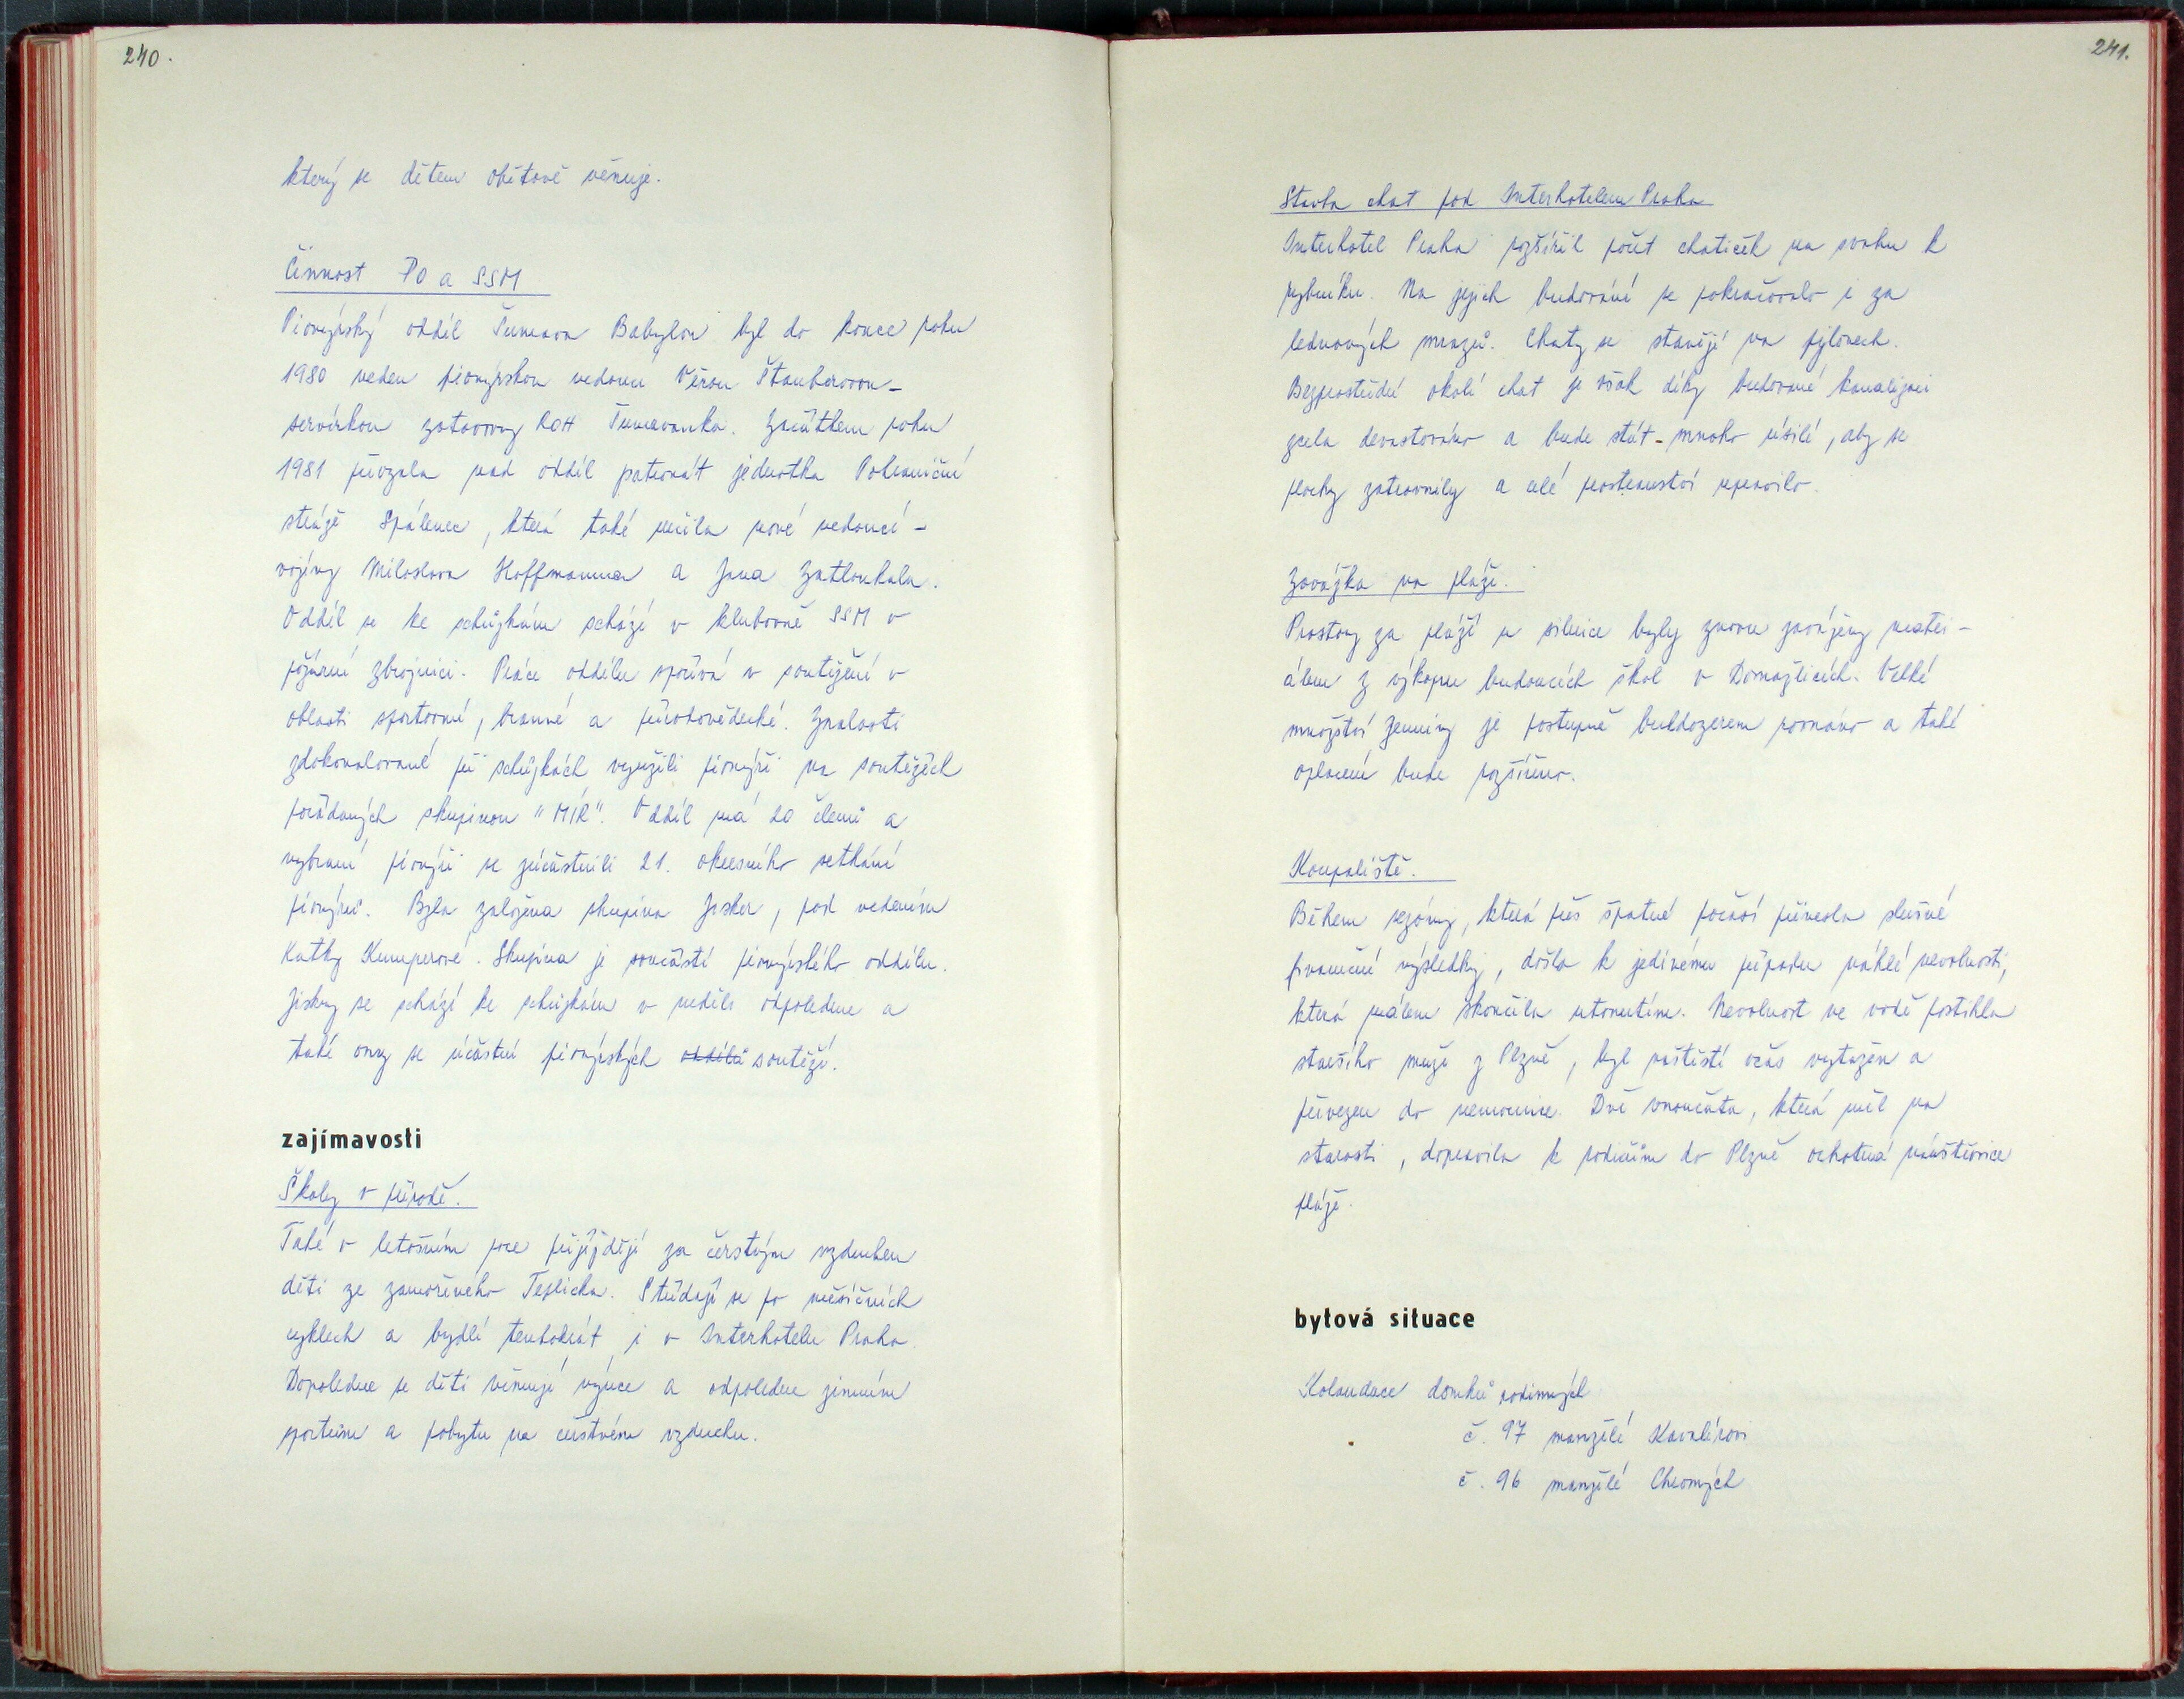 240.
který se dětem obětavě věnuje.
Činnost PO a SSM
Pionýrský oddíl Šumava Babylon byl do konce roku
1980 veden pionýrskou vedoucí Věrou Štauberovou -
servírkou zotavovny ROH Šumavanka. Začátkem roku
1981 převzala nad oddíl patronát jednotka Pohraniční
stráže Spálenec, která také určila nové vedoucí -
vojíny Miloslava Hoffmanna a Jana Zatloukala.
Oddíl se ke schůzkám schází v klubovně SSM v
požární zbrojnici. Práce oddílu spočívá v soutěžení v
oblasti sportovní, branné a přírodovědecké. Znalosti
zdokonalované při schůzkách využili pionýři na soutěžích
pořádaných skupinou "MÍR". Oddíl má 20 členů a
vybraní pionýři se zúčastnili 21. okresního setkání
pionýrů. Byla založena skupina Jisker, pod vedením
Katky Kumperové. Skupina je součástí pionýrského oddílu.
Jiskry se schází ke schůzkám v neděli odpoledne a
také ony se účastní pionýrských oddílů soutěží.
zajímavosti
Školy v přírodě.
Také v letošním roce přijíždějí za čerstvým vzduchem
děti ze zamořeného Teplicka. Střídají se po měsíčních
cyklech a bydlí tentokrát i v Interhotelu Praha.
Dopoledne se děti věnují výuce a odpoledne zimním
sportům a pobytu na čerstvém vzduchu.
241.
Stavba chat pod Interhotelem Praha
Interhotel Praha rozšířil počet chatiček na svahu k
rybníku. Na jejich budování se pokračovalo i za
lednových mrazů. Chaty se stavějí na pylonech.
Bezprostřední okolí chat je však díky budované kanalizaci
zcela devastováno a bude stát - mnoho úsilí, aby se
plochy zatravnily a celé prostranství upravilo.
Zavážka na pláži.
Prostory za pláží u silnice byly znovu zaváženy materi-
álem z výkopu budoucích škol v Domažlicích. Velké
množství zeminy je postupně buldozerem rovnáno a také
oplocení bude rozšířeno.
Koupaliště.
Během sezóny, která přes špatné počasí přinesla slušné
finanční výsledky, došlo k jedinému případu náhlé nevolnosti,
která málem skončila utonutím. Nevolnost ve vodě postihla
staršího muže z Plzně, byl naštěstí včas vytažen a
převezen do nemocnice. Dvě vnoučata, která měl na
starosti, dopravila k rodičům do Plzně ochotná návštěvnice
pláže.
bytová situace
Kolaudace domků rodinných
č. 97 manželé Kavalírovi
č. 96 manželé Chromých